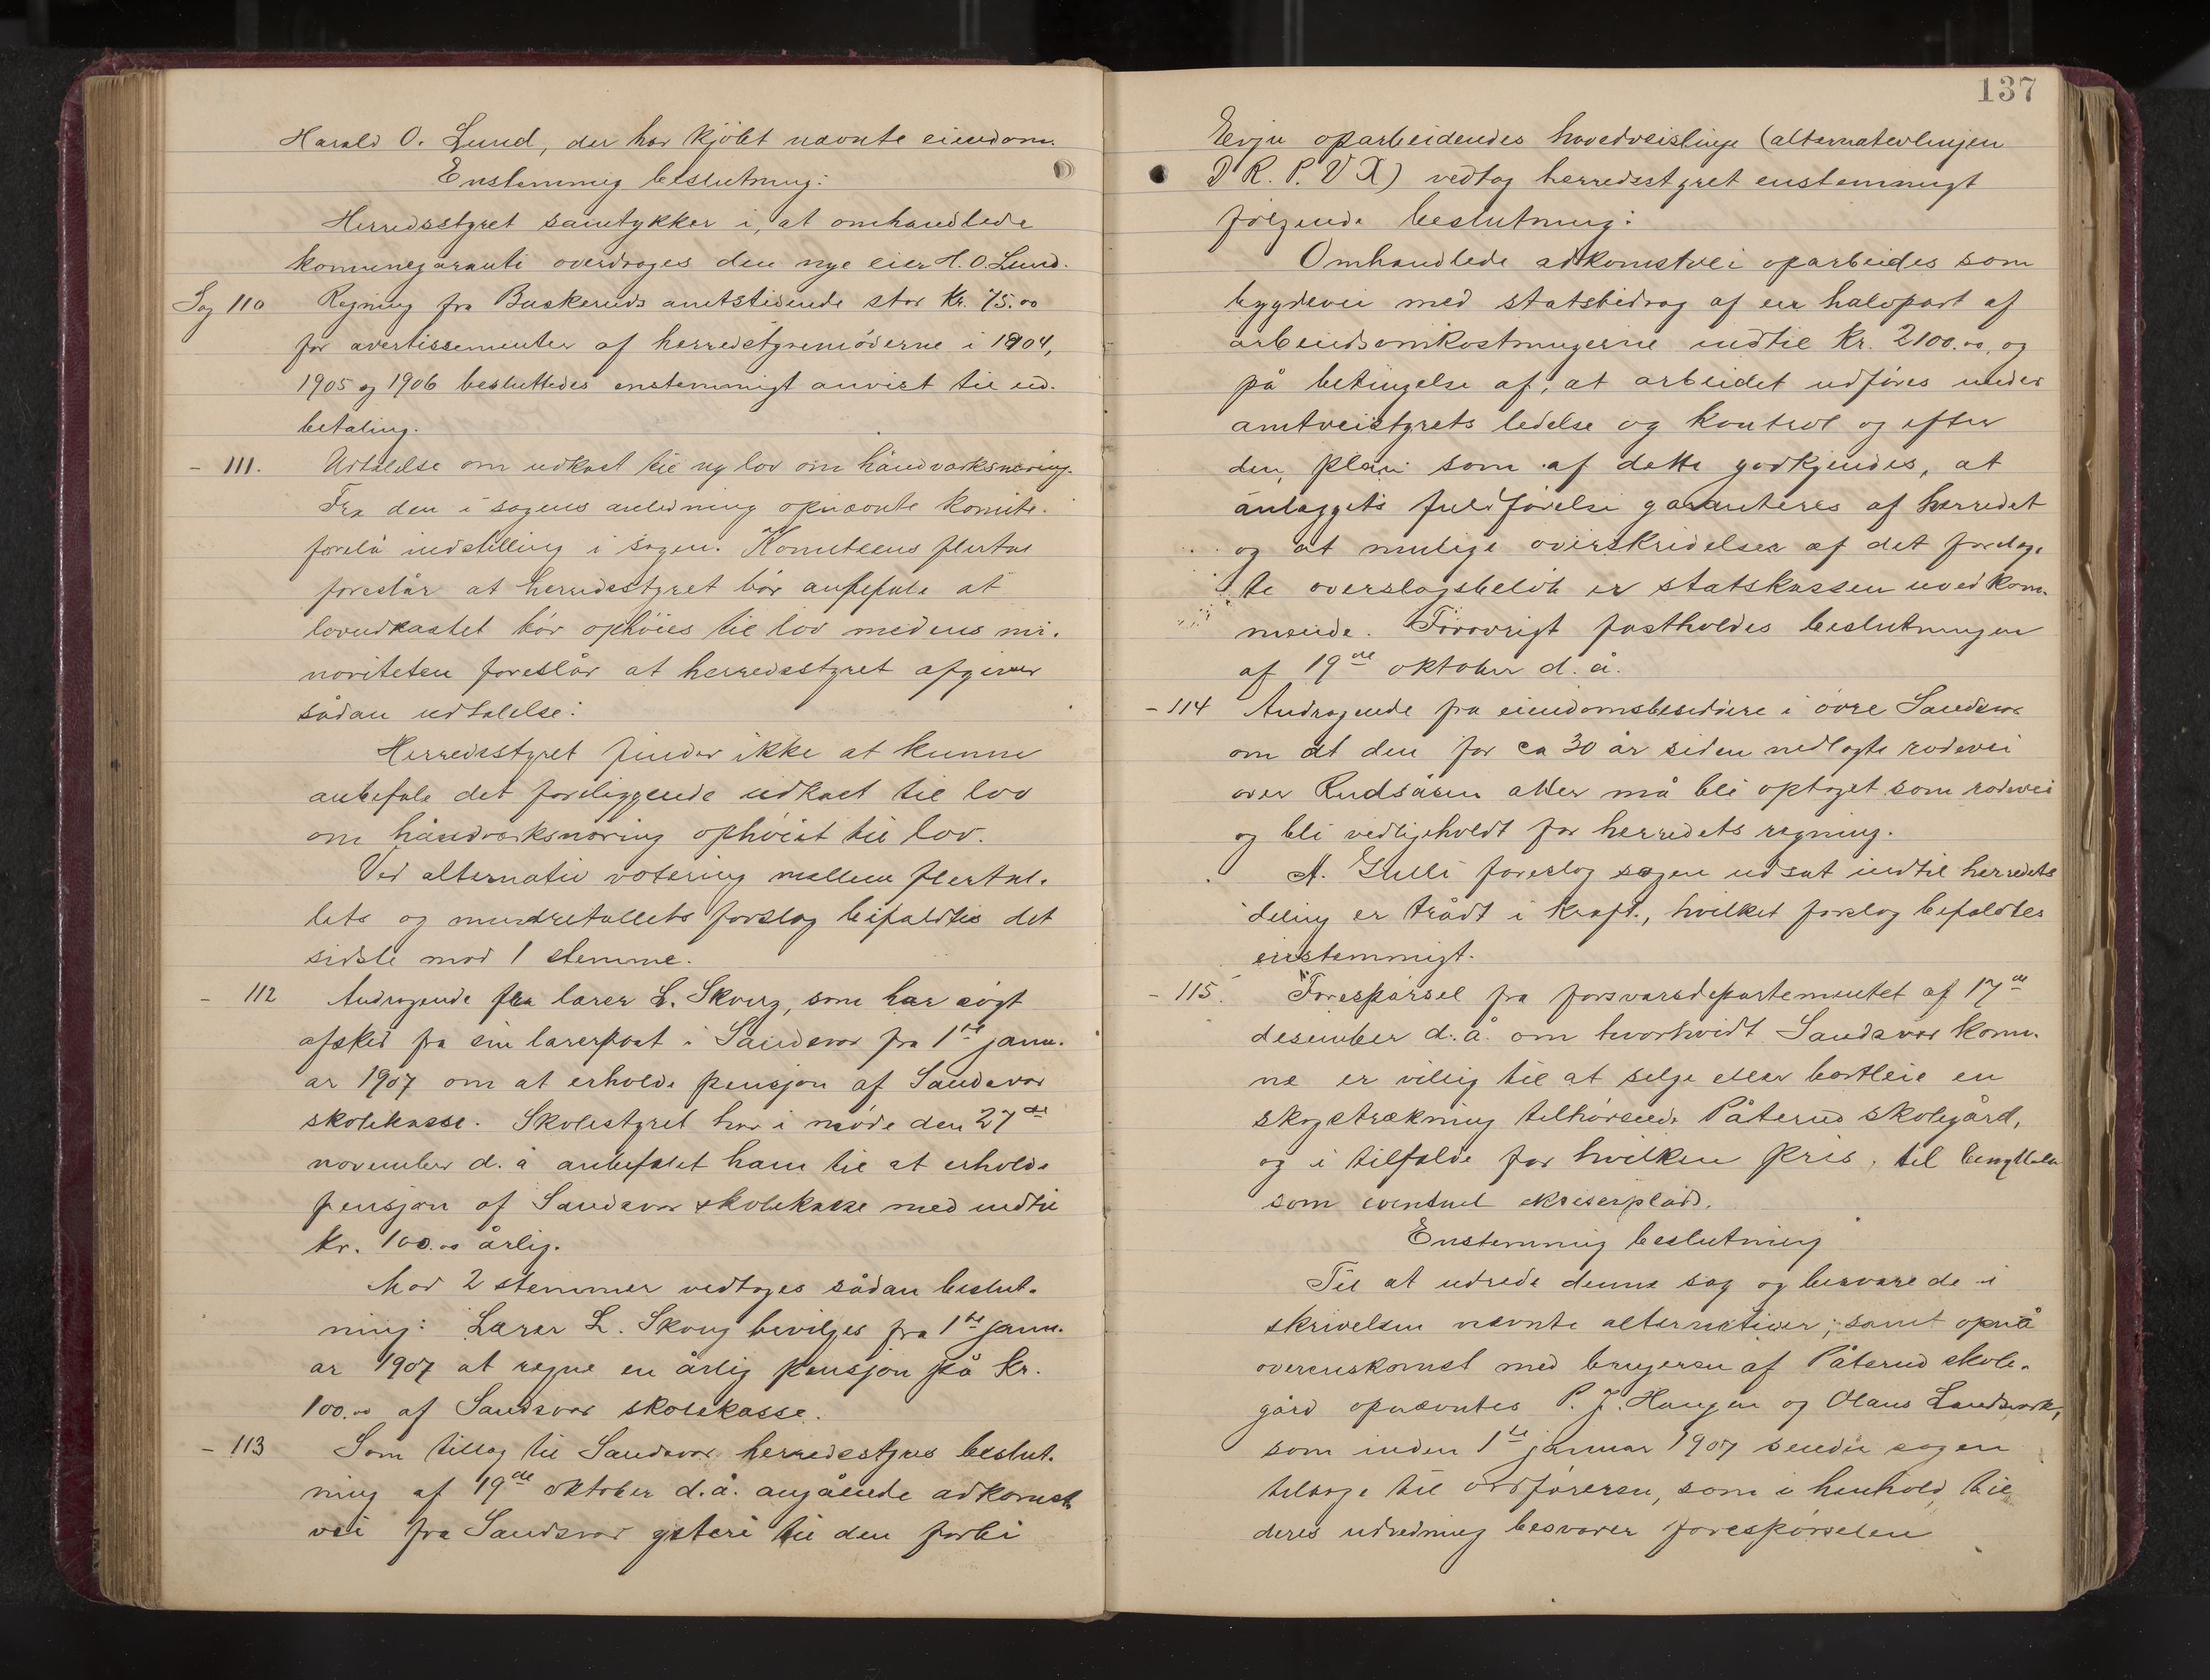 Harald O. Lund, der har kjöbt nævnte eiendom.
Enstemmig beslutning:
Herredsstyret samtykker i, at omhandlede
komunegaranti overdrages den nye eier H. O. Lund.
Sag 110 Regning fra Buskeruds amtstidende stor Kr. 75.00
for avertissementer af herredstyremöderne i 1904,
1905 og 1906 besluttedes enstemmigt anvist til ud-
betaling.
- 111. Udtalelse om udkast til ny lov om håndværksnæring.
Fra den i sagens anledning opnævnte komite
forelå indstilling i sagen. Komiteens flertal
foreslår at herredsstyret bör anbefale at
lovudkastet bör ophöies til lov medens mi-
noriteten foreslår at herredsstyret afgiver
sådan udtalelse:
Herredsstyret finder ikke at kunne
anbefale det foreliggende udkast til lov
om håndværksnæring ophöiet til lov.
Ved alternativ votering mellem flertal-
lets og mindretallets forslag bifaldtes det
sidste mod 1 stemme.
- 112 Andragende fra lærer L. Skoug, som har sögt
afsked fra sin lærerpost i Sandsvær fra 1ste janu-
ar 1907 om at erholde pensjon af Sandsvær
skolekasse. Skolestyret har i möde den 27de
november d. å anbefalet ham til at erholde
pensjon af Sandsvær skolekasse med indtil
kr. 100.00 årlig.
Mod 2 stemmer vedtoges sådan beslut-
ning: Lærer L. Skoug bevilges fra 1ste janu-
ar 1907 at regne en årlig pensjon på kr.
100.00 af Sandsvær skolekasse.
- 113 Som tillæg til Sandsvær herredsstyres beslut-
ning af 19de oktober d. å. angående adkomst
vei fra Sandsvær ysteri til den forbi
137
Evju oparbeidendes hovedveislinje (alternativlinjen
D R. P. V X) vedtog herredsstyret enstemmigt
fölgende beslutning:
Omhandlede adkomstvei oparbeides som
bygdevei med statsbidrag af en halvpart af
arbeidsomkostningerne indtil Kr. 2100.00, og
på betingelse af, at arbeidet udföres under
amtveistyrets ledelse og kontrol og efter
den plan som af dette godkjendes, at
anlæggets fuldförelse garanteres af herredet
og at mulige overskridelser af det foretag-
te overslagsbelöb er statskassen uvedkom-
mende. Forövrigt fastholdes beslutningen
af 19de oktober d. å.
- 114 Andragende fra eiendomsbesiddere i övre Sandsvær
om at den for ca 30 år siden nedlagte rodevei
over Rudsåsen atter må bli optaget som rodevei
og bli vedligeholdt for herredets regning.
A. Gulli foreslog sagen udsat indtil herredets
deling er trådt i kraft, hvilket forslag bifaldtes
enstemmigt.
- 115. Forespörsel fra forsvarsdepartementet af 17de
desember d. å. om hvorhvidt Sandsvær komu-
ne er villig til at selge eller bortleie en
skogstrækning tilhörende Påterud skolegård,
og i tilfælde for hvilken pris, til benyttelse
som eventuel ekserserplads.
Enstemmig beslutning
Til at udrede denne sag og besvare de i
skrivelsen nævnte alternativer, samt opnå
overenskomst med brugeren af Påterud skole-
gård opnævntes P. J. Haugen og Olaus Landsverk,
som inden 1ste januar 1907 sender sagen
tilbage til ordföreren, som i henhold til
deres udredning besvarer forespörselen